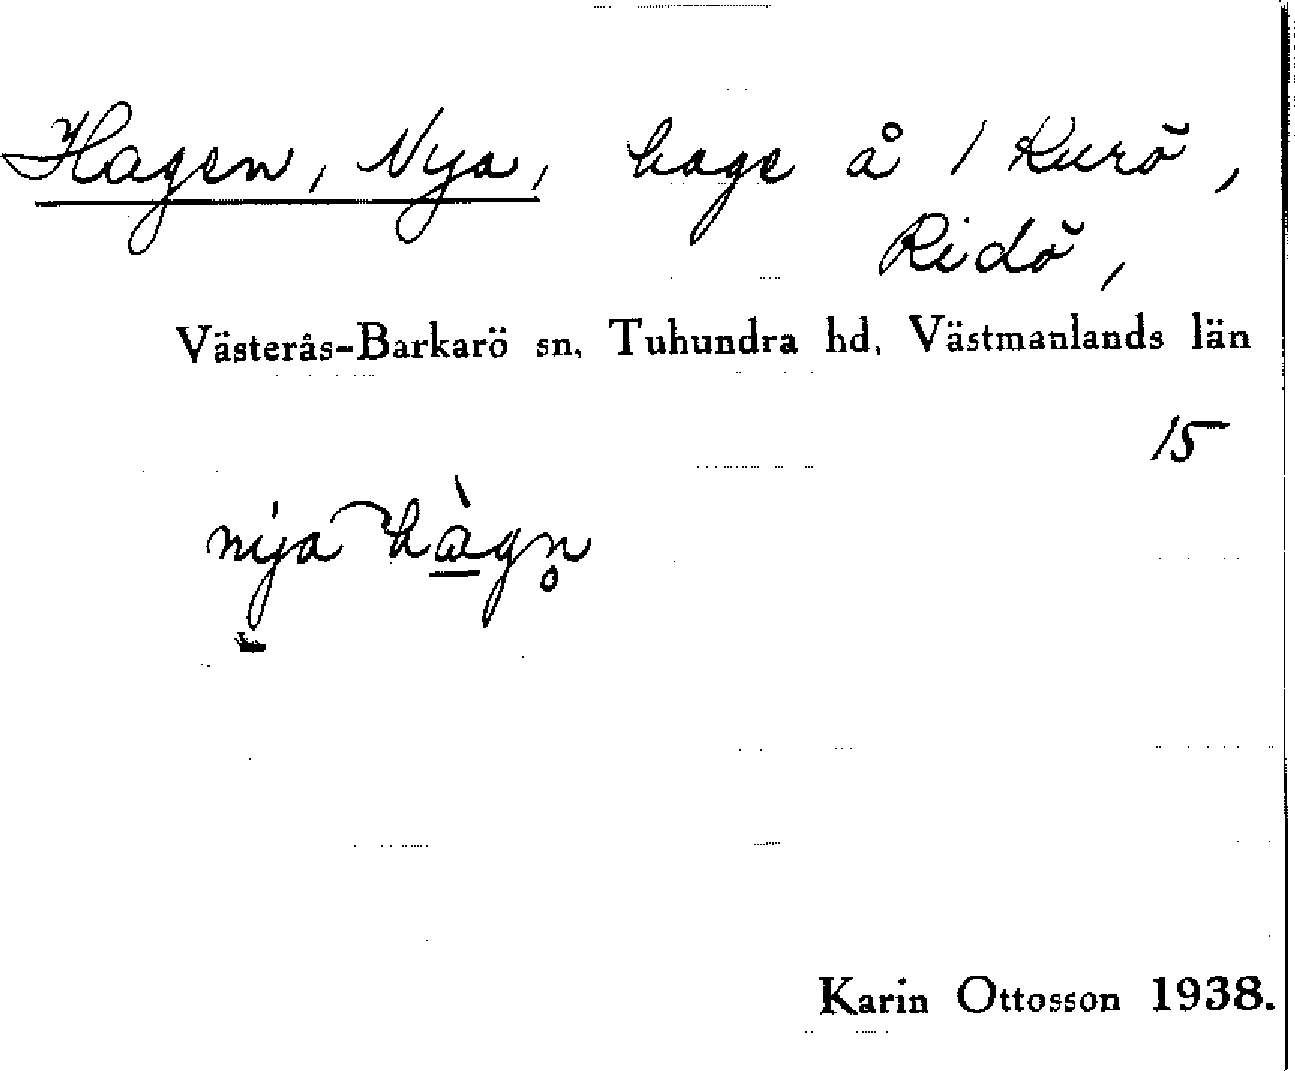 Hagen, Nya, hage å 1 Kurö,
Ridö,
Västerås-Barkarö sn, Tuhundra hd, Västmanlands län
15
nya hàgn̥
Karin Ottosson 1938.